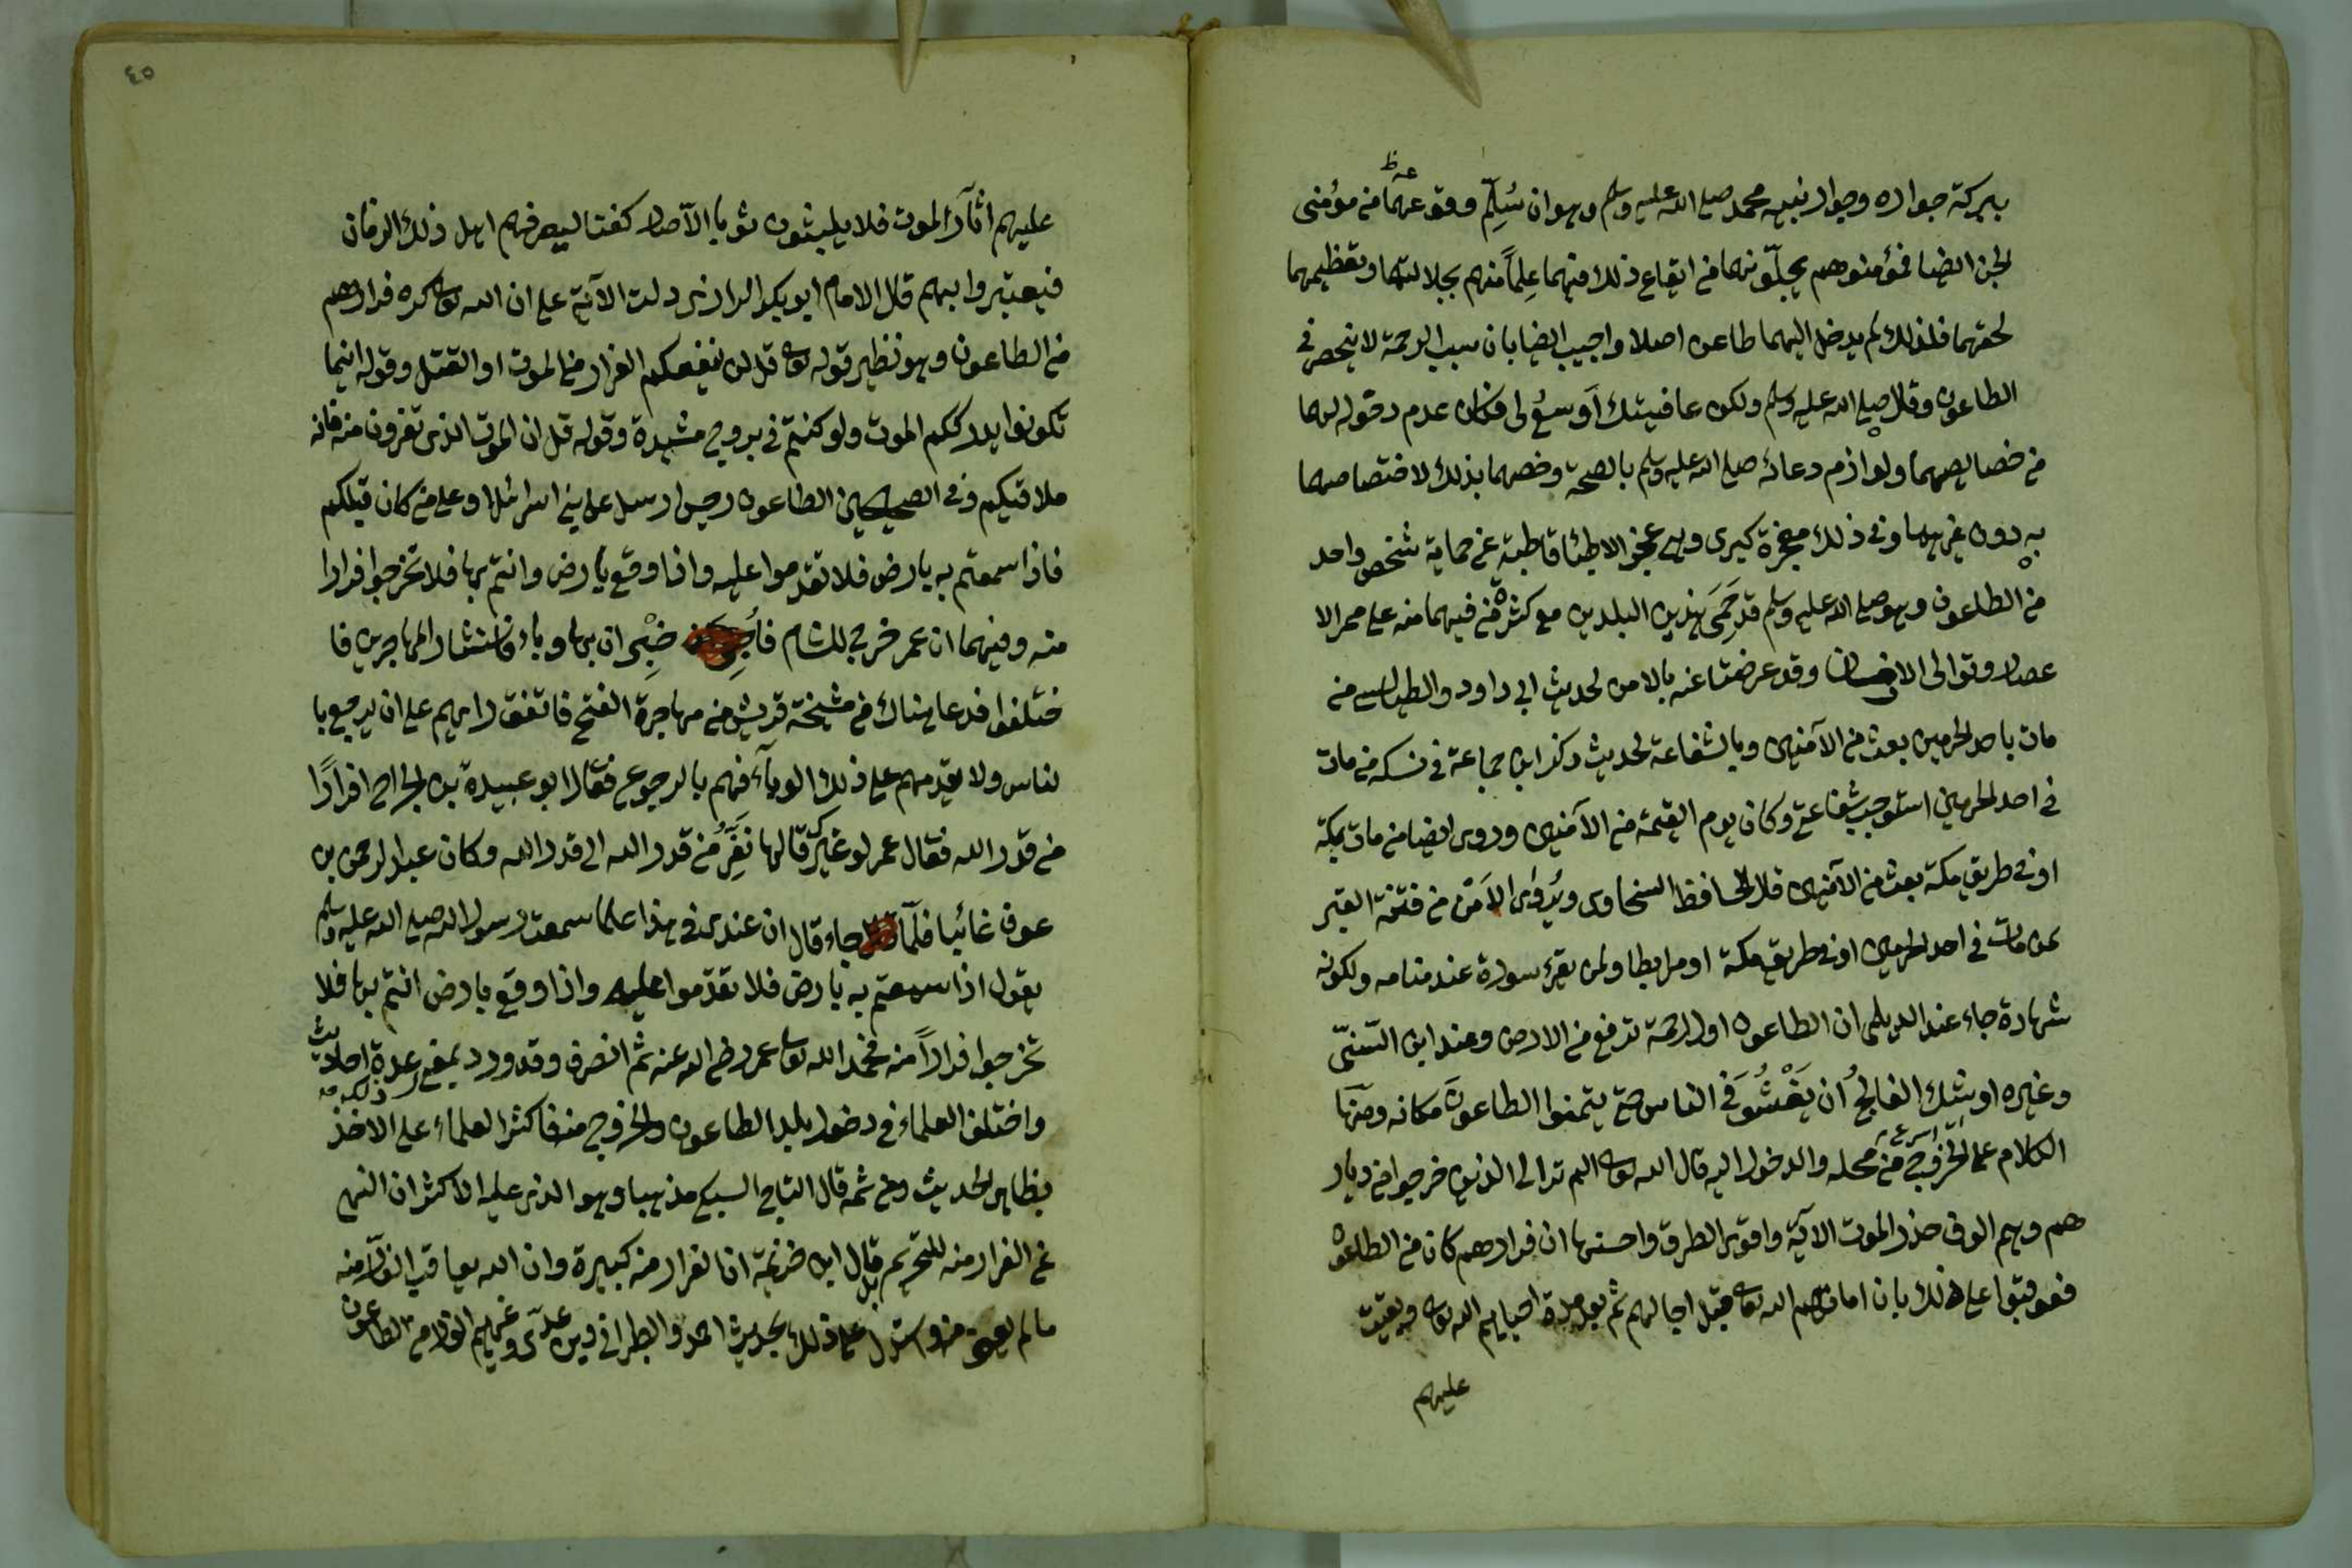 ببركة جواره وجوار نبيه محمد صلى الله عليه وسلم وهو ان سُلِّم وقوعهما من مؤمنى
الجن ايضا فمؤمنوهم يجلّونهما من ايقاع ذلك فيهما عِلماً منهم بجلالتهما وتعظيمهما
لحقهما فلذلك لم يدخل اليهما طاعون اصلا واجيب ايضا بان سبب الرحمة لا ينحصر فى
الطاعون وقال صلى الله عليه وسلم ولكن عافيتك اَوسعُ لى فكان عدم دخوله لهما
من خصايصهما ولوازم دعائه صلى الله عليه وسلم بالصحة وخصهما بذلك لاختصاصهما
به دون غيرهما وفى ذلك معجزة كبرى وهى عجز الاطبا قاطبة عن حماية شخص واحد
من الطاعون وهو صلى الله عليه وسلم قد حَمَى هذين البلدين مع كثرة من فيهما منه على ممر الا
عصار وتوالى الازمان وقد عوضتا عنه بالامن لحديث ابى داود والطيالسى من
مات باحد الحرمين بعث من الآمنين وبالشفاعة لحديث ذكر ابن جماعة فى نسكه من مات
فى احد الحرمين استوجب شفاعتى وكان يوم القيمة من الآمنين وروى ايضا من مات بمكة
او فى طريق مكة بعث من الآمنين قال الحافظ السخاوى ويُروَى الاَمْن من فتنة القبر
لمن مات فى احد الحرمين او فى طريق مكة او مرابطا ولمن يقرء سورة عند منامه ولكونه
شهادة جاء عند الديلمى ان الطاعون اول رحمة ترفع من الارض وعند ابن السنىّ
وغيره اوشك الفالجُ ان يَفْشُوَ فى الناس حتى يتمنوا الطاعونَ مكانه ومنها
الكلام على الخروج من محله والدخول اليه قال الله تعالى الم تر الى الذين خرجوا من ديار
هم وهم الوف حذر الموت الآية واقوى الطرق واحسنها ان فرارهم كان من الطاعون
فعوقبوا على ذلك بان اماتهم الله تعالى قبل اجالهم ثم بعد مدة احياهم الله تعالى وبقيت
عليهم
٤٥
عليهم اثار الموت فلا يلبثون ثوبا الا صار كفنا ليعرفهم اهل ذلك الزمان
فيعتبروا بهم قال الامام ابو بكر الرازى دلت الآية على ان الله تعالى كره فرارهم
من الطاعون وهو نظير قوله تعالى قل لن ينفعكم الفرار من الموت او القتل وقوله اينما
تكونوا يدرككم الموت ولو كنتم فى بروج مشيدة وقوله قل ان الموت الذى تفرون منه فانه
ملاقيكم وفى الصحيحين الطاعون رجس ارسل على بنى اسرائيل او على من كان قبلكم
فاذا سمعتم به بارض فلا تقدموا عليه واذا وقع بارض وانتم بها فلا تخرجوا فرارا
منه وفيهما ان عمر خرج للشام خبِّر ان بها وباء فاستشار المهاجرين فا
ختلفوا فدعا هناك من مشيخة قريش من مهاجرة الفتح فاتفق رايهم على ان يرجع با
لناس ولا يقدمهم على ذلك الوباء فهم بالرجوع فقال ابو عبيدة بن الجراح افرارًا
من قدر الله فقال عمر لو غيرك قالها نَفِرُّ من قدر الله الى قدر الله وكان عبد الرحمن بن
عوف غائبا فلمّا جاء قال ان عندى فى هذا علما سمعت رسول الله صلى الله عليه وسلم
يقول اذا سمعتم به بارض فلا تقدّموا عليه واذا وقع بارض انتم بها فلا
تخرجوا فراراً منه فحمد الله تعالى عمر رضى الله عنه ثم انصرف وقد ورد بمعنى ذلك عدة احاديث
واختلف العلماء فى دخول بلد الطاعون والخروج منه فاكثر العلماء على الاخذ
بظاهر الحديث ومن ثمه قال التاج السبكى مذهبنا وهو الذى عليه الاكثر ان النهى
عن الفرار منه للتحريم بل قال ابن خزيمة ان الفرار منه كبيرة وان الله يعاقب الفارّ منه
ما لم يعف عنه واستدل على ذلك بحديث احمد والطبرانى وابن عدى وغيرهم الفار من الطاعون